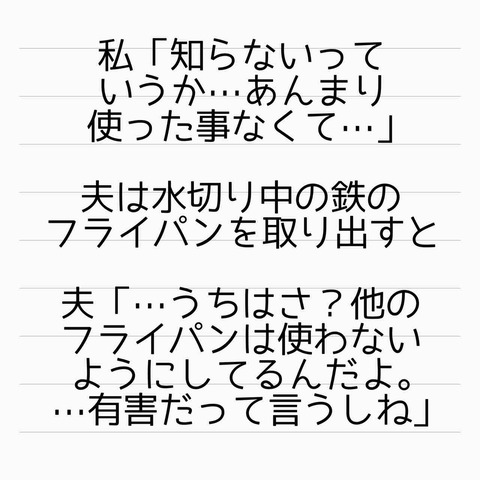 私「知らないって
いうか…あんまり
使った事なくて…」
夫は水切り中の鉄の
フライパンを取り出すと
夫「…うちはさ？他の
フライパンは使わない
ようにしてるんだよ。
…有害だって言うしね」